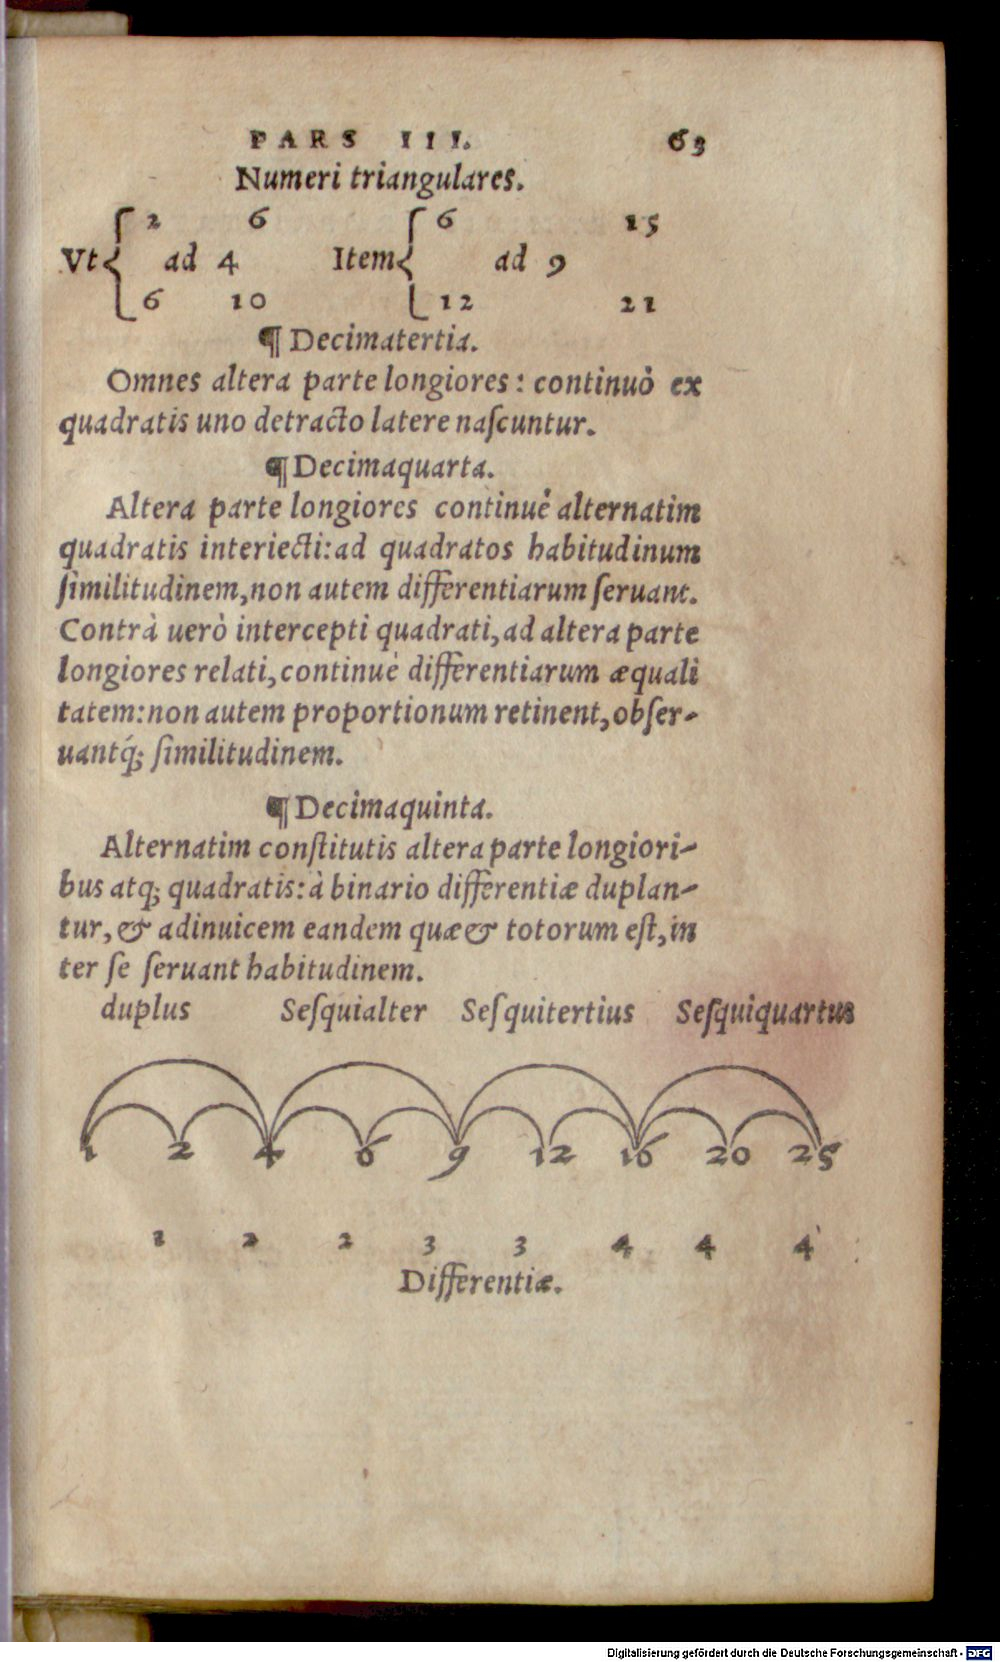 PARS III. 63
Numeri triangulares.
2 6 6 15
Vt ad 4 Item ad 9
6 10 12 21
¶ Decimatertia.
Omnes altera parte longiores: continuò ex
quadratis uno detracto latere naſcuntur.
¶ Decimaquarta.
Altera parte longiores continuè alternatim
quadratis interiecti: ad quadratos habitudinum
ſimilitudinem, non autem differentiarum ſeruant.
Contrà uerò intercepti quadrati, ad altera parte
longiores relati, continuè differentiarum æquali
tatem: non autem proportionum retinent, obſer-
uantq́; ſimilitudinem.
¶ Decimaquinta.
Alternatim conſtitutis altera parte longiori-
bus atq; quadratis: à binario differentiæ duplan-
tur, & adinuicem eandem quæ & totorum eſt, in
ter ſe ſeruant habitudinem.
duplus Seſquialter Seſquitertius Seſquiquartus
1 2 4 6 9 12 16 20 25
1 2 2 3 3 4 4 4
Differentiæ.
Digitalisierung gefördert durch die Deutsche Forschungsgemeinschaft - DFG